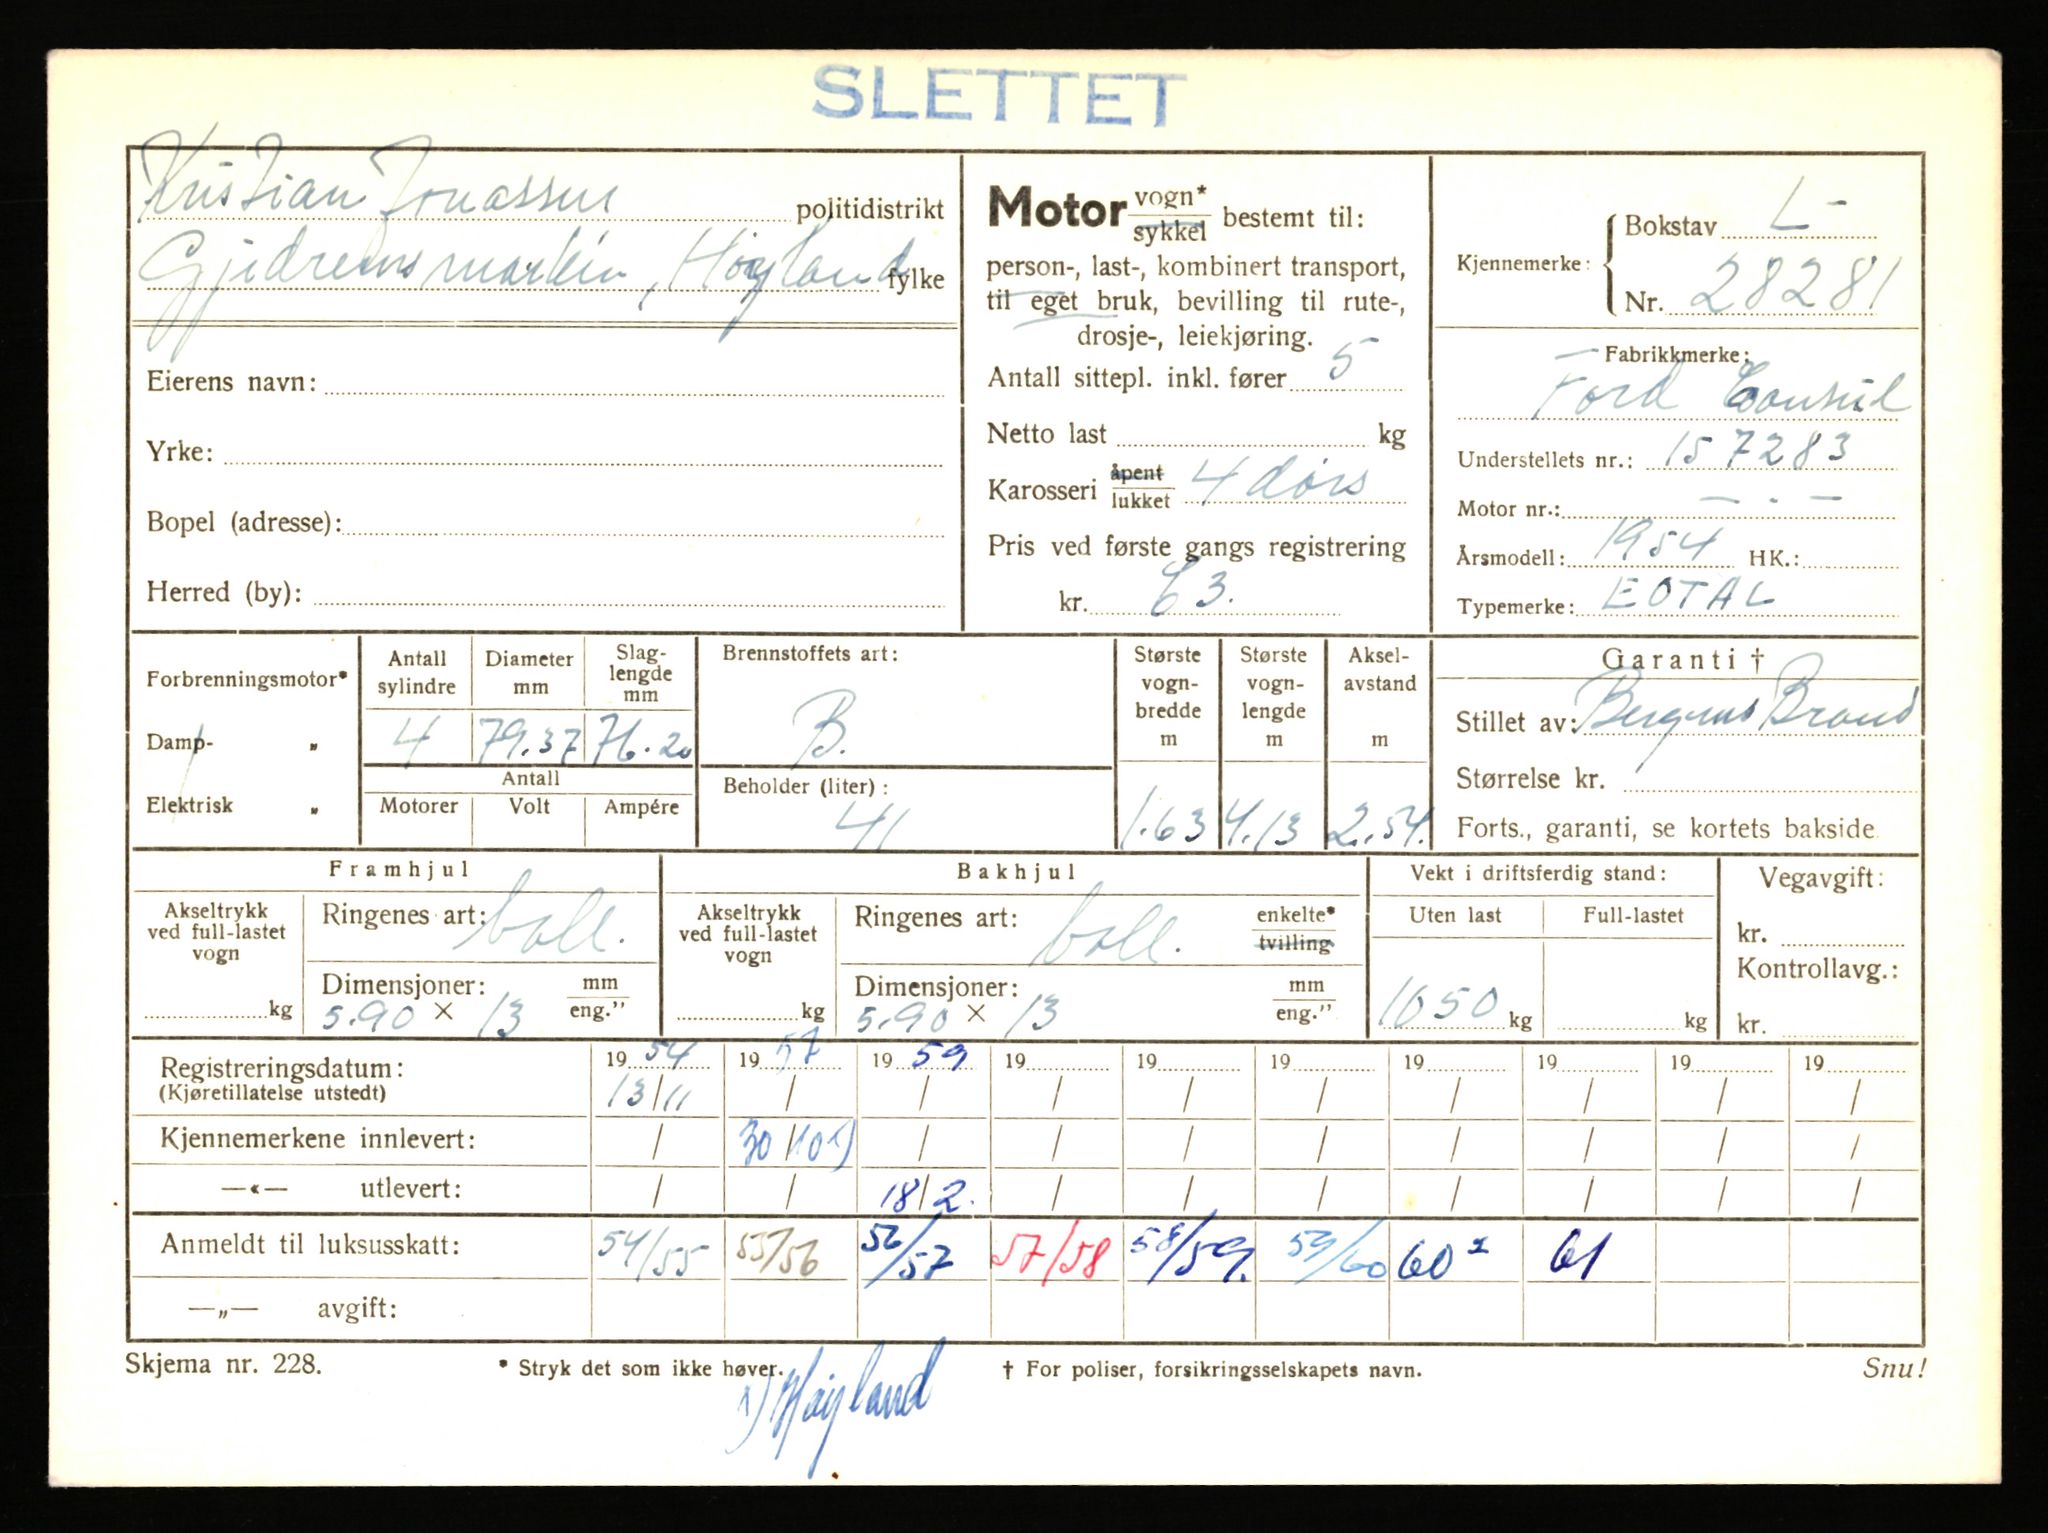 SLETTET
Kristian Jonassen politidistrikt
Gjedremsmarkên, Høyland fylke
Eierens navn:
Yrke:
Bopel (adresse):
Herred (by):
Motor vogn* / sykkel bestemt til:
person-, last-, kombinert transport,
til eget bruk, bevilling til rute-,
drosje-, leiekjøring.
Antall sittepl. inkl. fører 5
Netto last kg
Karosseri åpent / lukket 4 dørs
Pris ved første gangs registrering
kr. 63.
Kjennemerke: Bokstav L-
Nr. 28281
Fabrikkmerke:
Ford Consul
Understellets nr.: 157283
Motor nr.: — . —
Årsmodell: 1954 HK.:
Typemerke: EOTAL
Forbrenningsmotor*
Damp- „
Elektrisk „
Antall sylindre 4
Diameter mm 79.37
Slag-lengde mm 76.20
Antall
Motorer Volt Ampére
Brennstoffets art:
B.
Beholder (liter):
41
Største vogn-bredde m 1.63
Største vogn-lengde m 4.13
Aksel-avstand m 2.54.
Garanti †
Stillet av: Bergens Brand
Størrelse kr.
Forts., garanti, se kortets bakside.
Framhjul
Akseltrykk ved full-lastet vogn kg
Ringenes art: ball.
Dimensjoner: mm / eng."
5.90 × 13
Bakhjul
Akseltrykk ved full-lastet vogn kg
Ringenes art: ball. enkelte* / tvilling
Dimensjoner: mm / eng."
5.90 × 13
Vekt i driftsferdig stand:
Uten last Full-lastet
1050 kg kg
Vegavgift:
kr.
Kontrollavg.:
kr.
Registreringsdatum: 19 54 19 57 19 59 19 19 19 19 19 19 19
(Kjøretillatelse utstedt) 13/11 / / / / / / / / /
Kjennemerkene innlevert: / 30/10 1) / / / / / / / /
—«— utlevert: / / 18/2. / / / / / / /
Anmeldt til luksusskatt: 54/55 55/56 56/57 57/58 58/59. 59/60 60² 61
—„— avgift:
Skjema nr. 228.
* Stryk det som ikke høver.
† For poliser, forsikringsselskapets navn.
Snu!
1) Høyland